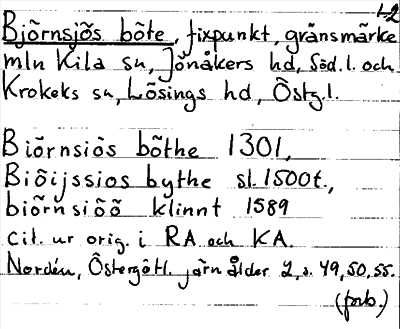 1-2
Björnsjös böte, fixpunkt, gränsmärke
mln Kila sn, Jönåkers hd, Söd.l. och
Krokeks sn, Lösings hd, Östg.l.
Biörnsiös böthe 1301,
Biöijssios bythe sl. 1500t.,
biörnsiöö klinnt 1589
cit. ur orig. i RA och KA.
Nordén, Östergötl. järnålder 2, s. 49, 50, 55.
(forb.)